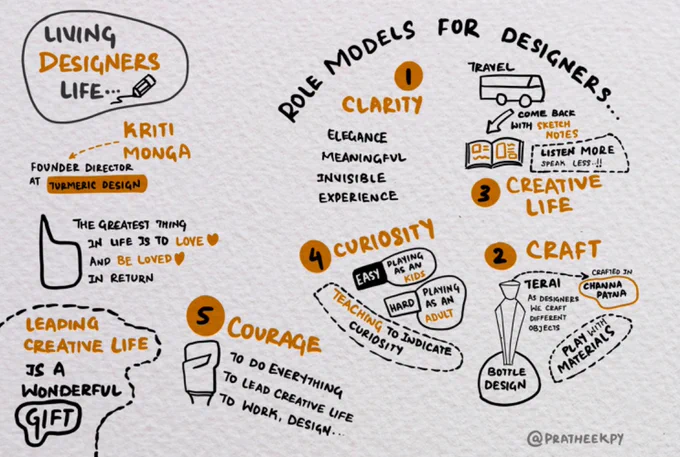 LIVING
DESIGNERS
LIFE...
KRITI
MONGA
FOUNDER DIRECTOR
AT TURMERIC DESIGN
THE GREATEST THING
IN LIFE IS TO LOVE
AND BE LOVED
IN RETURN
LEADING
CREATIVE LIFE
IS A
WONDERFUL
GIFT
ROLE MODELS FOR DESIGNERS...
1
CLARITY
ELEGANCE
MEANINGFUL
INVISIBLE
EXPERIENCE
TRAVEL
COME BACK
WITH SKETCH
NOTES
LISTEN MORE
SPEAK LESS..!!
3 CREATIVE
LIFE
2 CRAFT
TERAI
AS DESIGNERS
WE CRAFT
DIFFERENT
OBJECTS
CRAFTED IN
CHANNA
PATNA
PLAY WITH
MATERIALS
BOTTLE
DESIGN
4 CURIOSITY
EASY PLAYING
AS AN
KIDS
HARD PLAYING
AS AN
ADULT
TEACHING TO INDICATE
CURIOSITY
5 COURAGE
TO DO EVERYTHING
TO LEAD CREATIVE LIFE
TO WORK, DESIGN...
@PRATHEEKPY